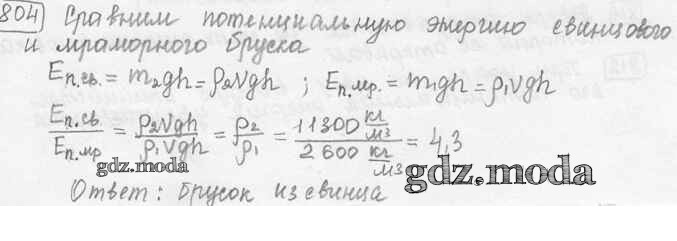 804) Сравним потенциальную энергию свинцового
и мраморного бруска
Eп.св. = m₂gh = ρ₂Vgh ; Eп.мр. = m₁gh = ρ₁Vgh
Eп.св. / Eп.мр = ρ₂Vgh / ρ₁Vgh = ρ₂ / ρ₁ = 11300 кг/м3 / 2600 кг/м3 = 4,3
gdz.moda
gdz.moda
Ответ: брусок из свинца